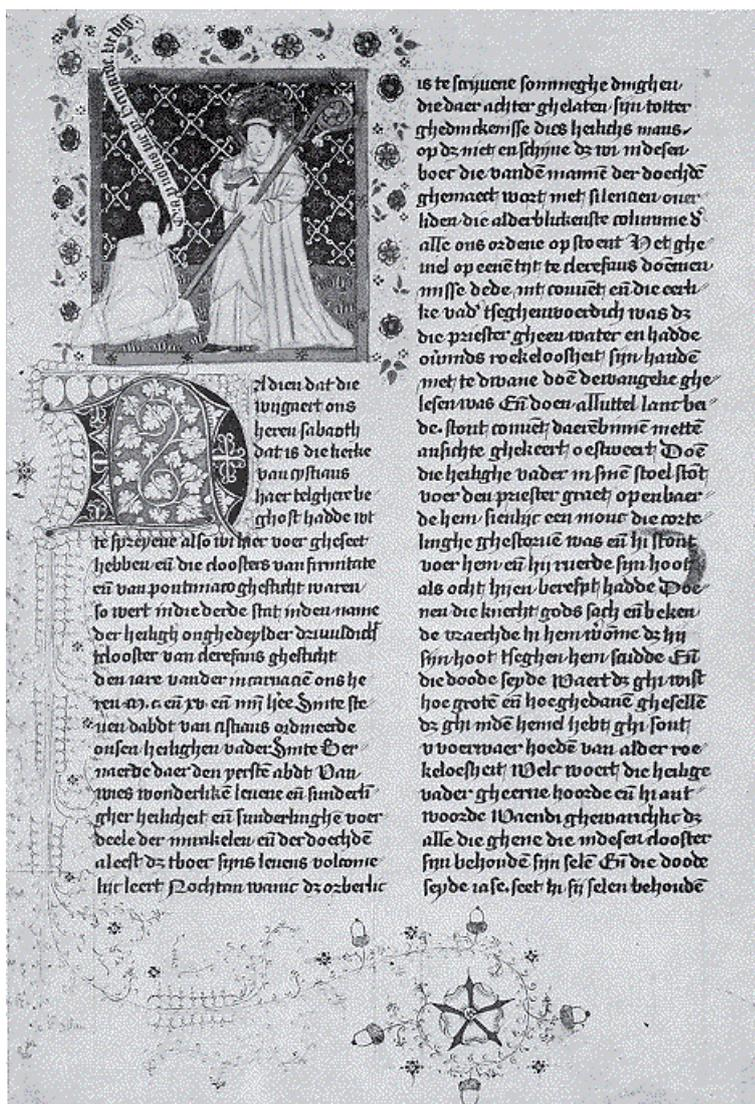 Na dien dat die
wijngaert ons
heren sabaoth
dat is die kerke
van cystiaus
haer telghere be
ghost hadde wt
te spreyene also wi hier voer gheseet
hebben eñ die cloosters van firmitate
eñ van pontiniaco ghesticht waren
so wert in die derde stat inden name
der heiligh onghedeylder
clooster van clerefaus ghesticht
den iare vander incarnacien ons he
ren m. c. eñ xv. eñ Sinte ste
uen dabdt van cistiaus ordineerde
onsen heilighen vader Sinte Ber
naerde daer den yersten abdt Van
wies wonderlikē leuene eñ sunderli
gher heilicheit eñ sunderlinghe voer
deele der mirakelen eñ der doechdē
aleest dz tboec sijns leuens volcome
lijc leert Nochtan wanic dz orberlic
is te scriuene sommeghe dinghen
die daer achter ghelaten sijn totter
ghedinckenisse dies heilichs mans
op dz niet en schijne dz wi in desen
boec die vanden mannē der doechdē
ghemaect wort met silencien ouer
liden die alderblickenste columme
alle ons ordene op stoent Het ghe
uiel op eenē tijt te clerefaus doemen
misse dede int conuēt eñ die eerli
ke vad' tseghenwoerdich was dz
die priester gheen water en hadde
ouermids roekeloosheit sijn handē
met te dwane doē dewangelie ghe
lesen was Eñ doen alluttel lanc bei
de stont conuēt daerebinnen metten
ansichte ghekeert oestweert Doē
die heilighe vader in sinē stoel stōt
voer den priester graet openbaer
de hem sienlijc een monc die corte
linghe ghestoruē was eñ hi stont
voer hem eñ hij ruerde sijn hoot
als ocht hijen berespt hadde Doe
nen die knecht gods sach eñ beken
de vraechde hi hem wōme dz hij
sijn hoot tseghen hem scudde Eñ
die doode seyde Waert dz ghi wist
hoe grotē eñ hoeghedanē ghesellē
dz ghi inden hemel hebt ghi sout
v voerwaer hoeden van alder roe
keloesheit Welc woert die heilige
vader gheerne hoorde eñ hi ant
woorde Waendi ghewarichlic dz
alle die ghene die in desen clooster
sijn behoudē sijn selē Eñ die doode
seyde ia se. seet hi sij selen behoudē